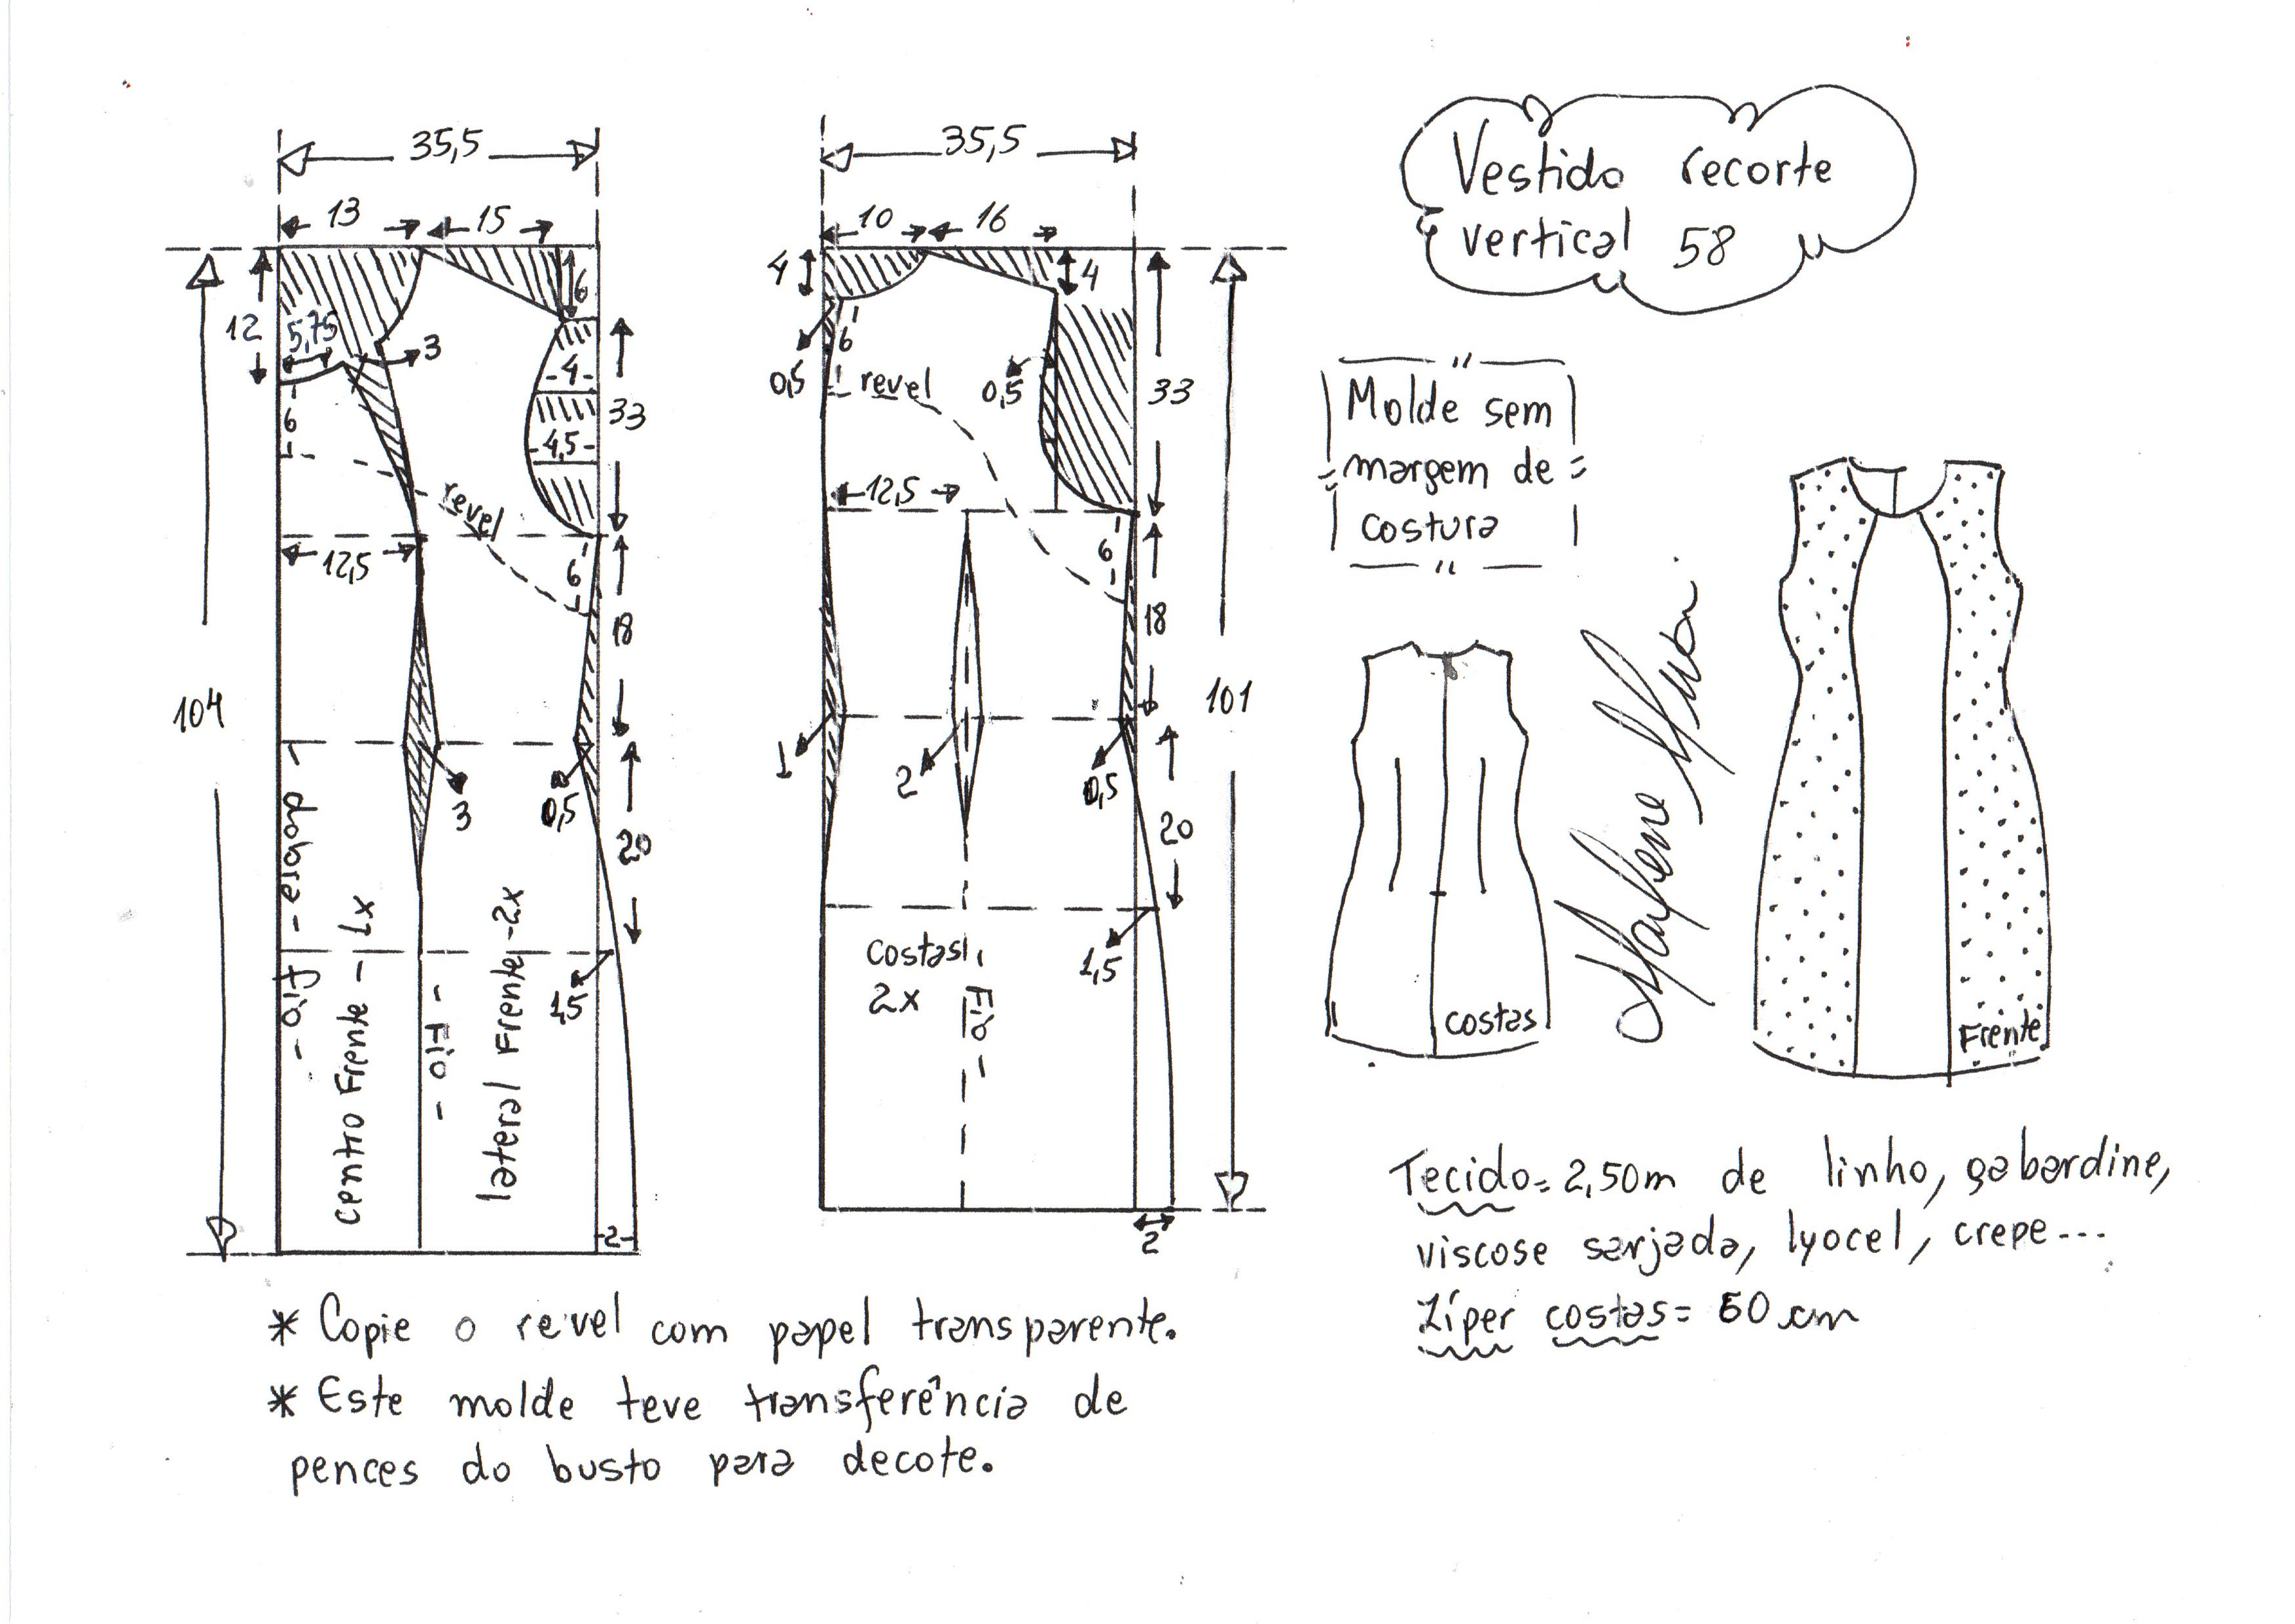 35,5
13
15
12
5,75
3
6
6
4
4,5
33
revel
12,5
6
18
104
3
0,5
20
1,5
dobra -
- Fio -
centro Frente - 1x
- Fio -
lateral Frente - 2x
2
35,5
10
16
4
4
6
0,5
revel
0,5
33
12,5
6
18
101
1
2
0,5
20
1,5
costas
2x
Fio -
2
Vestido recorte
vertical 58
Molde sem
margem de
costura
costas
Frente
Tecido= 2,50m de linho, gabardine,
viscose sarjada, lyocel, crepe...
Zíper costas= 60 cm
* Copie o revel com papel transparente.
* Este molde teve transferência de
pences do busto para decote.